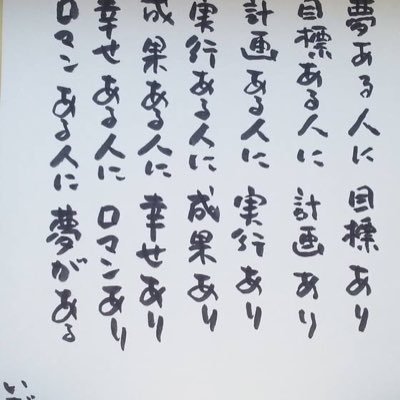 夢ある人に 目標あり
目標ある人に 計画あり
計画ある人に 実行あり
実行ある人に 成果あり
成果ある人に 幸せあり
幸せある人に ロマンあり
ロマンある人に 夢がある